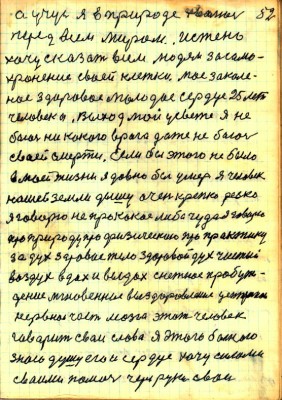 а учусь я в природе 52
перед всем миром. истень
хочу сказать всем людям за само-
хронение своей клетки. мое закале-
ное здоровое молодое сердце 25 лет
человека. Выход мой у свете я не
боюся ни какого врага даже не боюся
своей смерти. Если бы этого не было
в моей жизни я давно бы умер я человек
нашей земли дышу очен крепко резко
я говорю не про какое либо чудо я говорю
про природу про физическое про практику
за дух здравое тело здоровой дух чистый
воздух вдох и выдох снетное пробуж-
дение мгновенное выздоровление центральн
нервной част мозга этот человек
гаварит сваи слова я этого больного
знаю душу его и сердце хочу силами
своими помоч через руки сваи